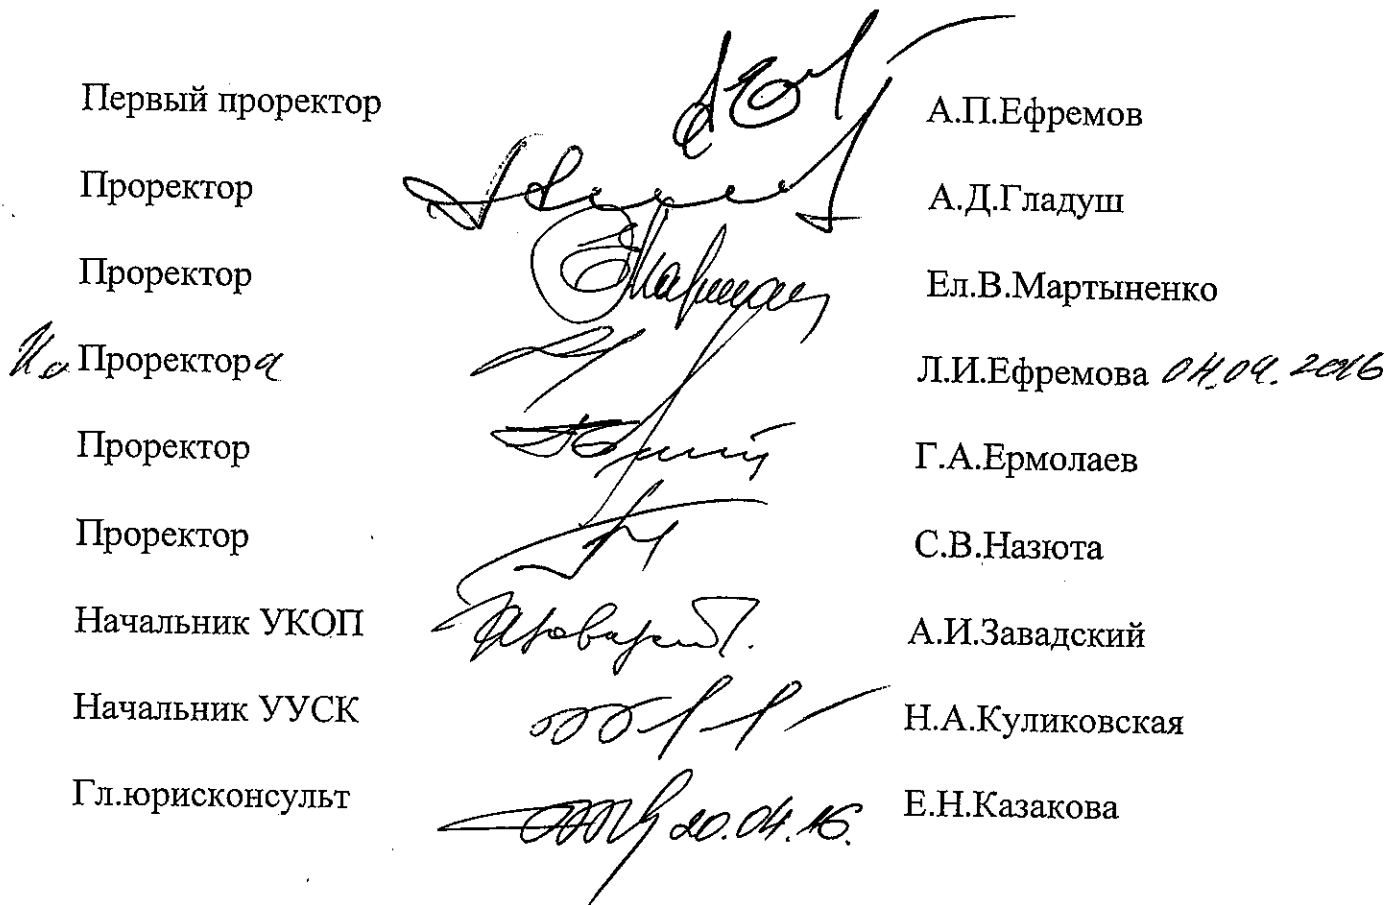 Первый проректор А.П.Ефремов
Проректор А.Д.Гладуш
Проректор Ел.В.Мартыненко
Ио Проректора Л.И.Ефремова
Проректор Г.А.Ермолаев
Проректор С.В.Назюта
Начальник УКОП А.И.Завадский
Начальник УУСК Н.А.Куликовская
Гл.юрисконсульт 20.04.16. Е.Н.Казакова